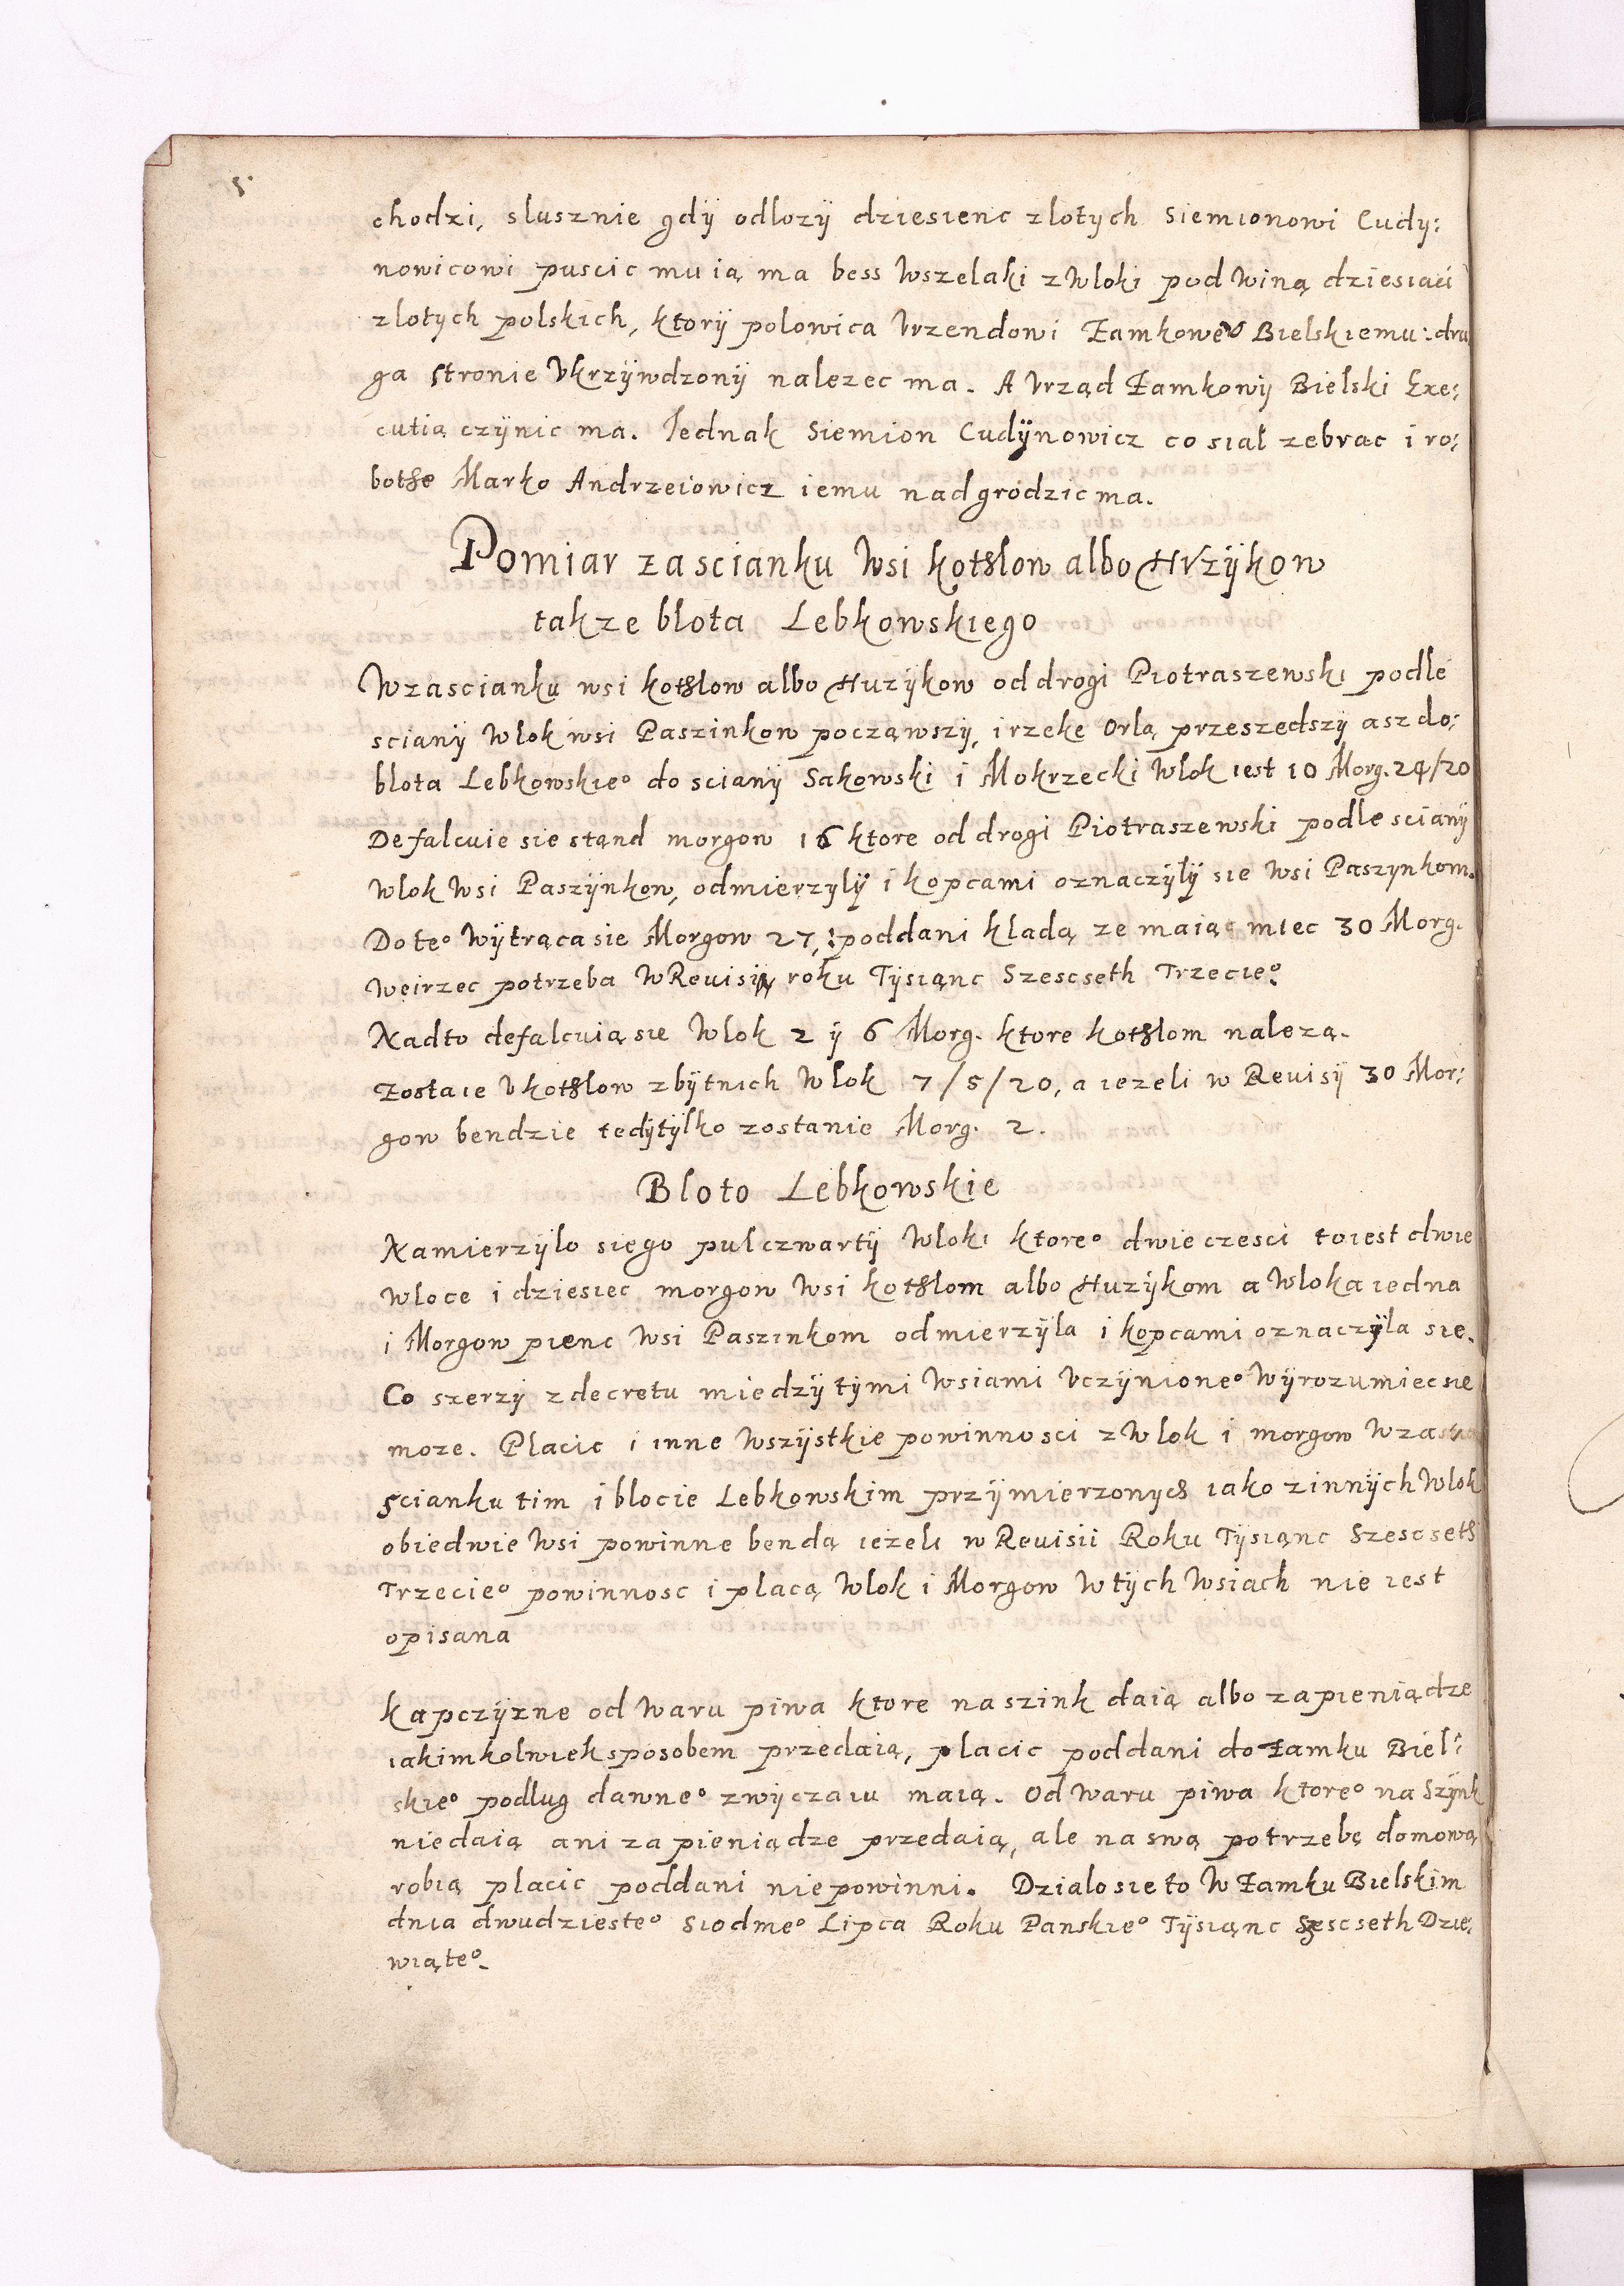 5.
chodzi, slusznie gdÿ odlozÿ dziesienc zlotych Siemionowi Cudy:
nowicowi puscic mu ią ma bess wszelaki zwloki pod winą dziesiaci
zlotych polskich, ktorÿ polowica Vrzendowi Zamkowe° Bielskiemu: dru
ga stronie Vkrzÿwdzonÿ nalezec ma. A Vrząd Zamkowÿ Bielski Exe:
cutią czÿnic ma. Jednak Siemion Cudÿnowicz co sial zebrac i ro:
bothe Marko Andrzeiowicz iemu nadgrodzic ma.
Pomiar zascianku Wsi Kothlow albo Hrzÿkow
takze blota Lebkowskiego
W zascianku wsi Kothlow albo Huzÿkow od drogi Piotraszewski podle
scianÿ Wlok wsi Paszinkow począwszÿ, i rzeke Orlą przeszedszÿ asz do:
blota Lebkowskie° do scianÿ Sakowski i Mokrzecki Wlok iest 10 Morg. 24/20
Defalcuie sie stąnd morgow 16 ktore od drogi Piotraszewski podle scianÿ
Wlok Wsi Paszÿnkow, odmierzylÿ i kopcami oznaczÿlÿ sie Wsi Paszynkom.
Do te° Wÿtrąca sie Morgow 27, : poddani kladą ze maiąc miec 30 Morg.
Weirzec potrzeba W Reuisiÿ roku Tÿsiąnc Szescseth Trzecie°.
Nadto defalcuią sie Wlok 2 ÿ 6 Morg. ktore Kothlom nalezą.
Zostaie V Kothlow zbÿtnich Wlok 7/5/20, a iezeli w Reuisÿ 30 Mor:
gow bendzie tedÿ tÿlko zostanie Morg. 2.
Bloto Lebkowskie
Namierzÿlo sie go pul czwartÿ Wloki ktore° dwie czesci to iest dwie
Wloce i dziesiec morgow Wsi Kothlom albo Huzÿkom a Wloka iedna
i Morgow pienc Wsi Paszinkom odmierzÿla i kopcami oznaczÿla sie.
Co szerzÿ z decretu miedzÿ tÿmi Wsiami Vczÿnione° Wÿrozumiec sie
moze. Placic i inne Wszÿstkie powinnosci z Wlok i morgow W za
scianku tim i blocie Lebkowskim przÿmierzonych iako z innÿch Wlok
obiedwie Wsi powinne bendą iezeli w Reuisii Roku Tÿsiąnc Szescseth
Trzecie° powinnosc i placą Wlok i Morgow W tÿch Wsiach nie iest
opisana
Kapczÿzne od Waru piwa ktore na szink daią albo za pieniądze
iakimkolwiek sposobem przedaią, placic poddani do Zamku Biel:
skie° podlug dawne° zwÿczaiu maią. Od waru piwa ktore° na Szÿnk
niedaią ani za pieniądze przedaią, ale na swą potrzebę domową
robią placic poddani nie powinni. Dzialo sie to W Zamku Bielskim
dnia dwudzieste° Siodme° Lipca Roku Panskie° Tÿsiąnc Szescseth Dzie:
wiąte°.